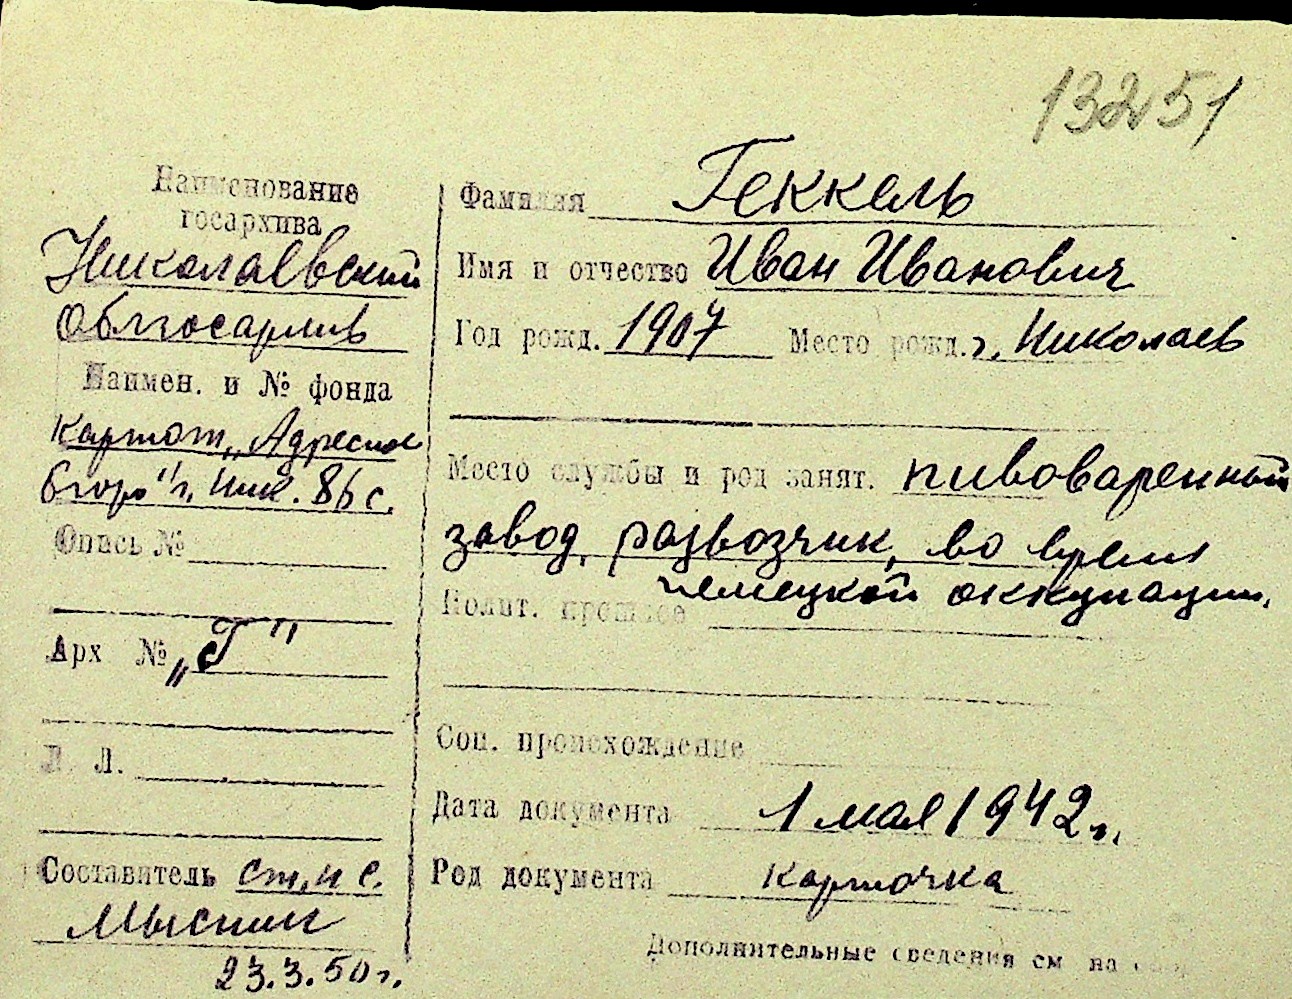 13251
Наименование
госархива
Николаевский
Облгосархив
Наимен. и № фонда
Картот. „Адресное
бюро" г. Ник. 86 с.
Опись №
Арх № „Г"
Л. Л.
Составитель ст. н с.
23.3.50 г.
Фамилия Геккель
Имя и отчество Иван Иванович
Год рожд. 1907 Место рожд. г. Николаев
Место службы и род занят. пивоваренный
завод, развозчик, во время
немецкой оккупации.
Полит. прошлое
Соц. происхождение
Дата документа 1 мая 1942 г.
Род документа карточка
Дополнительные сведения см на